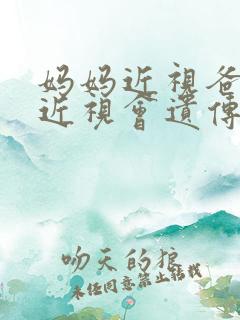 妈妈近視爸
近視會遺傳
吻天的狼
未经同意禁止转载